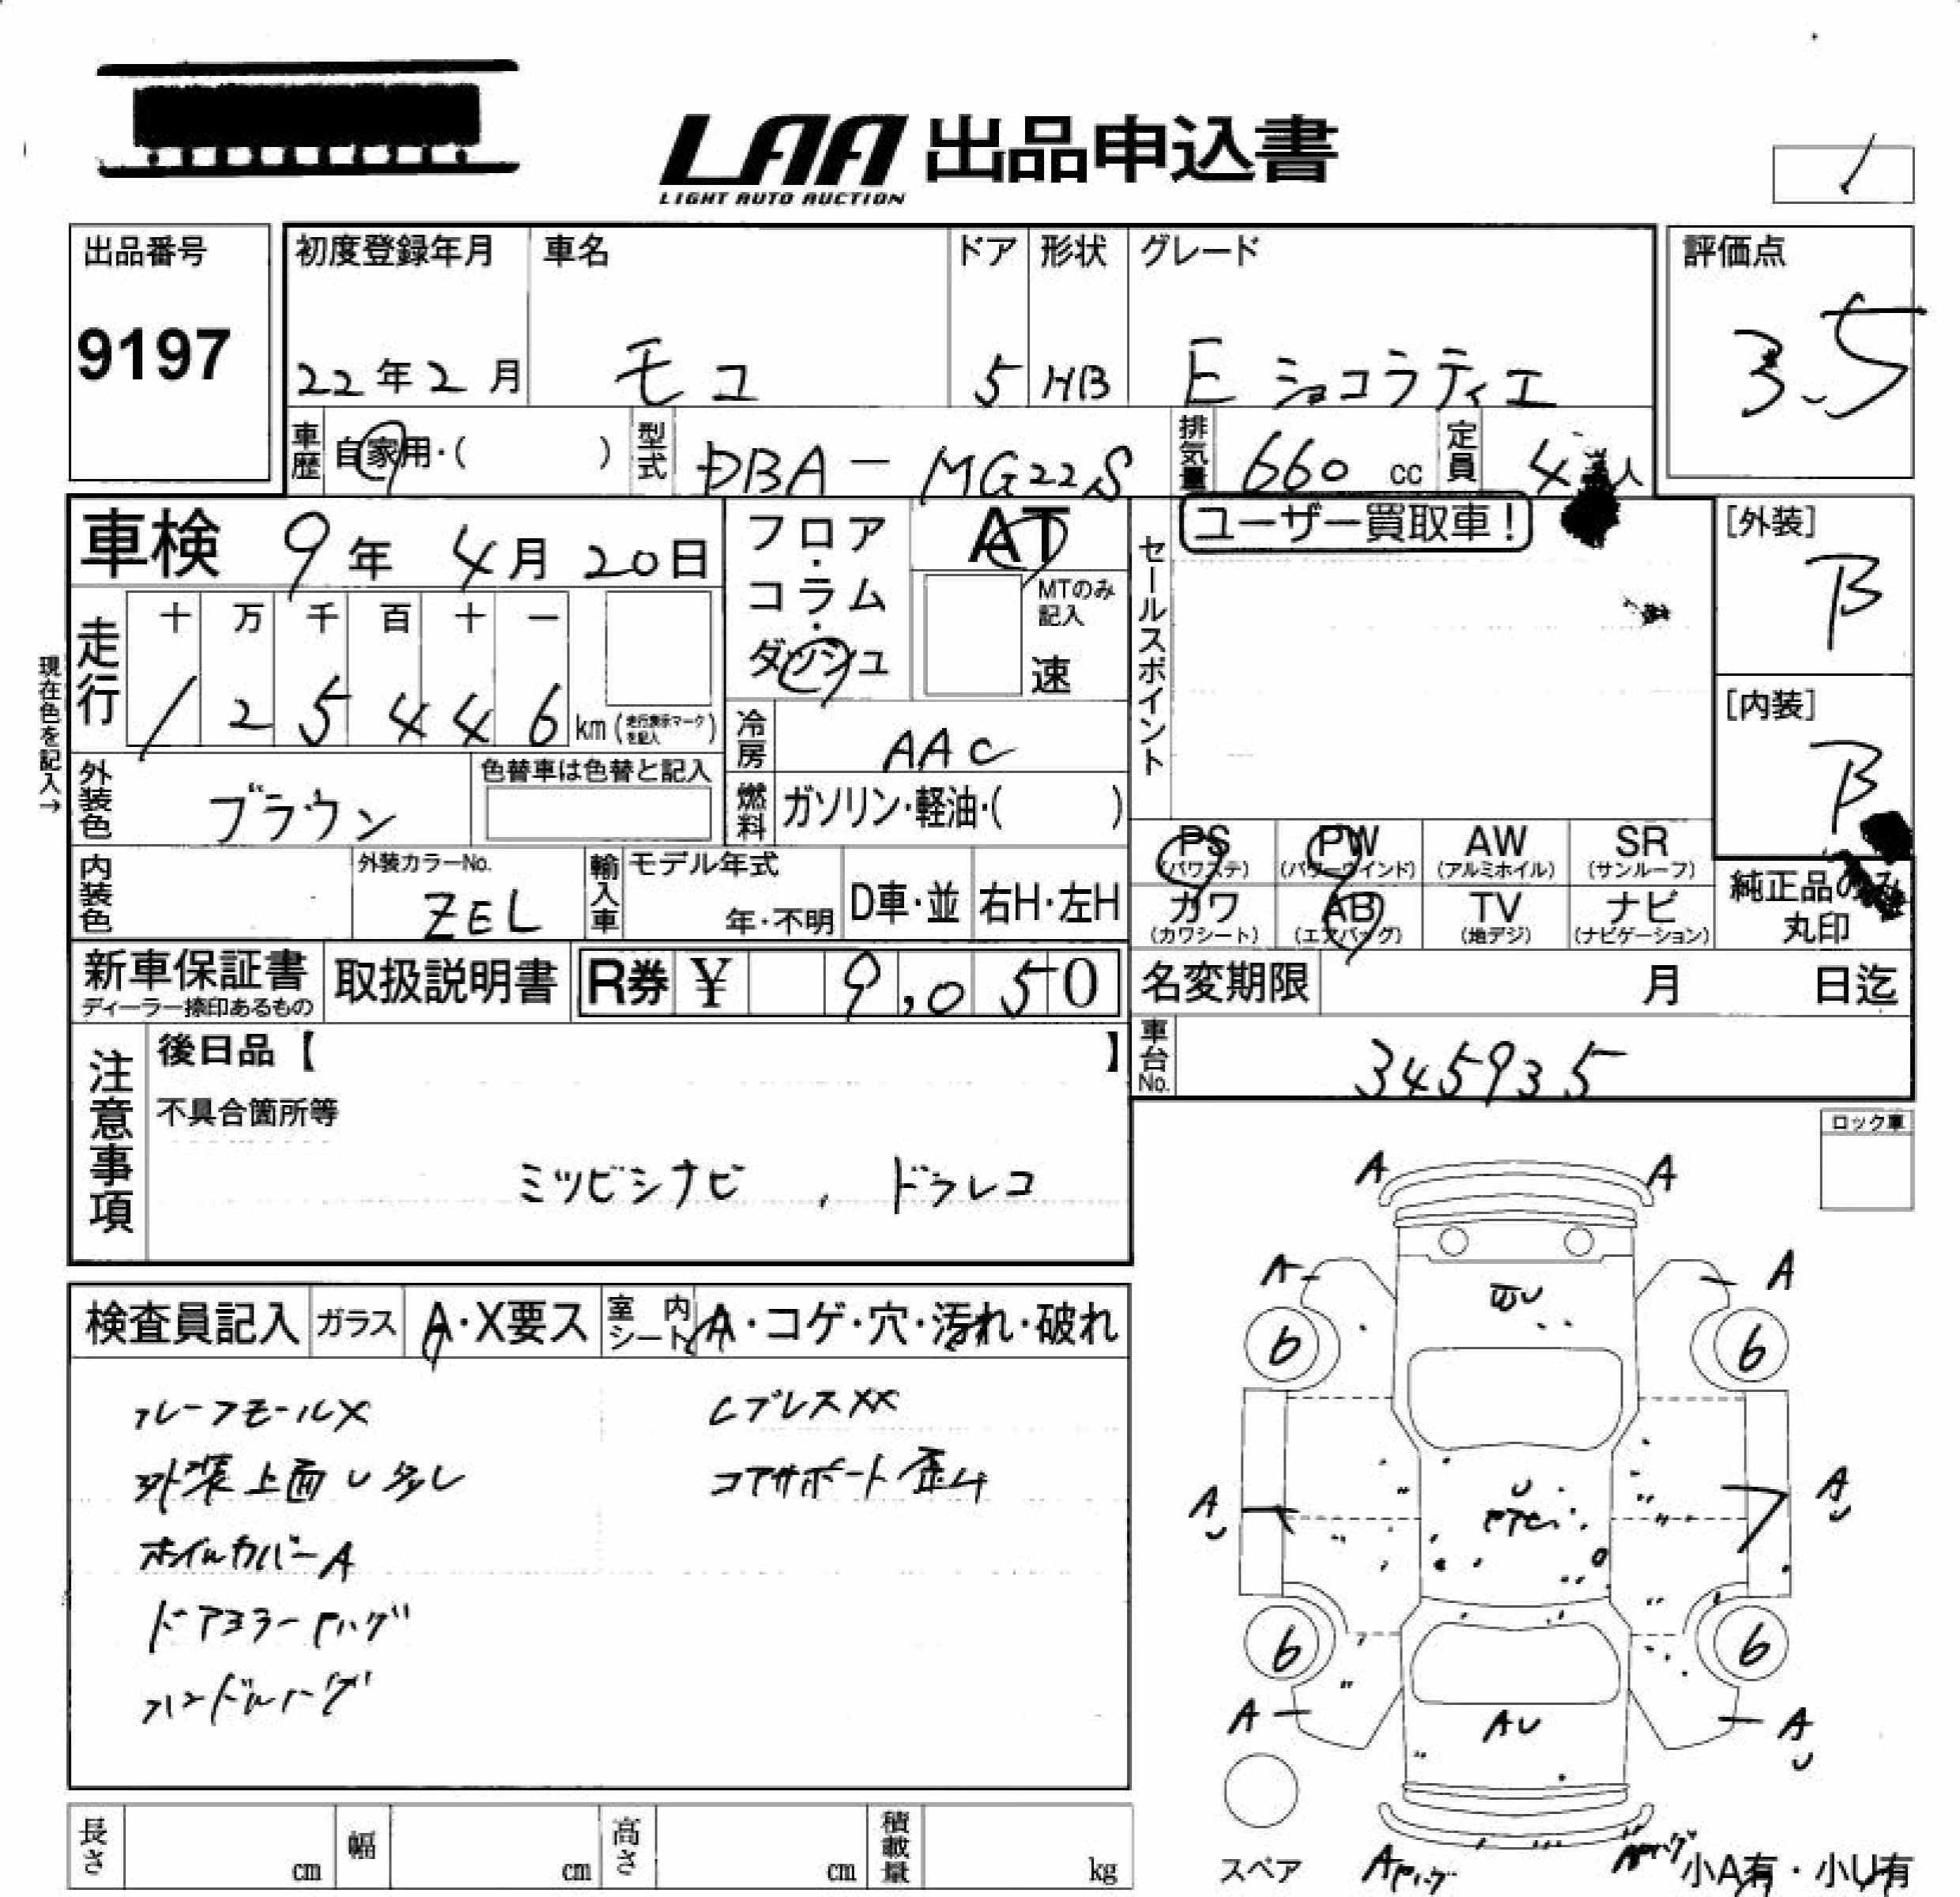 LAA 出品申込書
LIGHT AUTO AUCTION
/
出品番号
9197
初度登録年月
22年2月
車名
モコ
ドア
5
形状
HB
グレード
E ショコラティエ
評価点
3.5
車歴
自家用・( )
型式
DBA－MG22S
排気量
660 cc
定員
4人
車検 9年 4月 20日
フロア・コラム・ダッシュ
AT
MTのみ記入
速
セールスポイント
ユーザー買取車!
[外装]
B
[内装]
B
現在色を記入→
走行
十 万 千 百 十 一
1 2 5 4 4 6 km (走行表示マークを記入)
冷房
AAC
外装色
ブラウン
色替車は色替と記入
燃料
ガソリン・軽油・( )
内装色
外装カラーNo.
ZEL
輸入車
モデル年式
年・不明
D車・並
右H・左H
PS (パワステ)
PW (パワーウインド)
AW (アルミホイル)
SR (サンルーフ)
カワ (カワシート)
AB (エアバッグ)
TV (地デジ)
ナビ (ナビゲーション)
純正品のみ丸印
新車保証書
ディーラー捺印あるもの
取扱説明書
R券 ¥ 9,050
名変期限 月 日迄
車台No.
345935
注意事項
後日品【 】
不具合箇所等
ミツビシナビ , ドラレコ
ロック車
検査員記入
ガラス
A・X要ス
室内シート
A・コゲ・穴・汚れ・破れ
ルーフモールX
外装上面U多し
ホイルカバーA
ドアミラーPハゲ
ハンドルハゲ
LプレスXX
コアサポート歪ム
A A
A A
6 6
A U
U
A U
6 6
A
AU
A U
スペア
小A有・小U有
長さ cm
幅 cm
高さ cm
積載量 kg